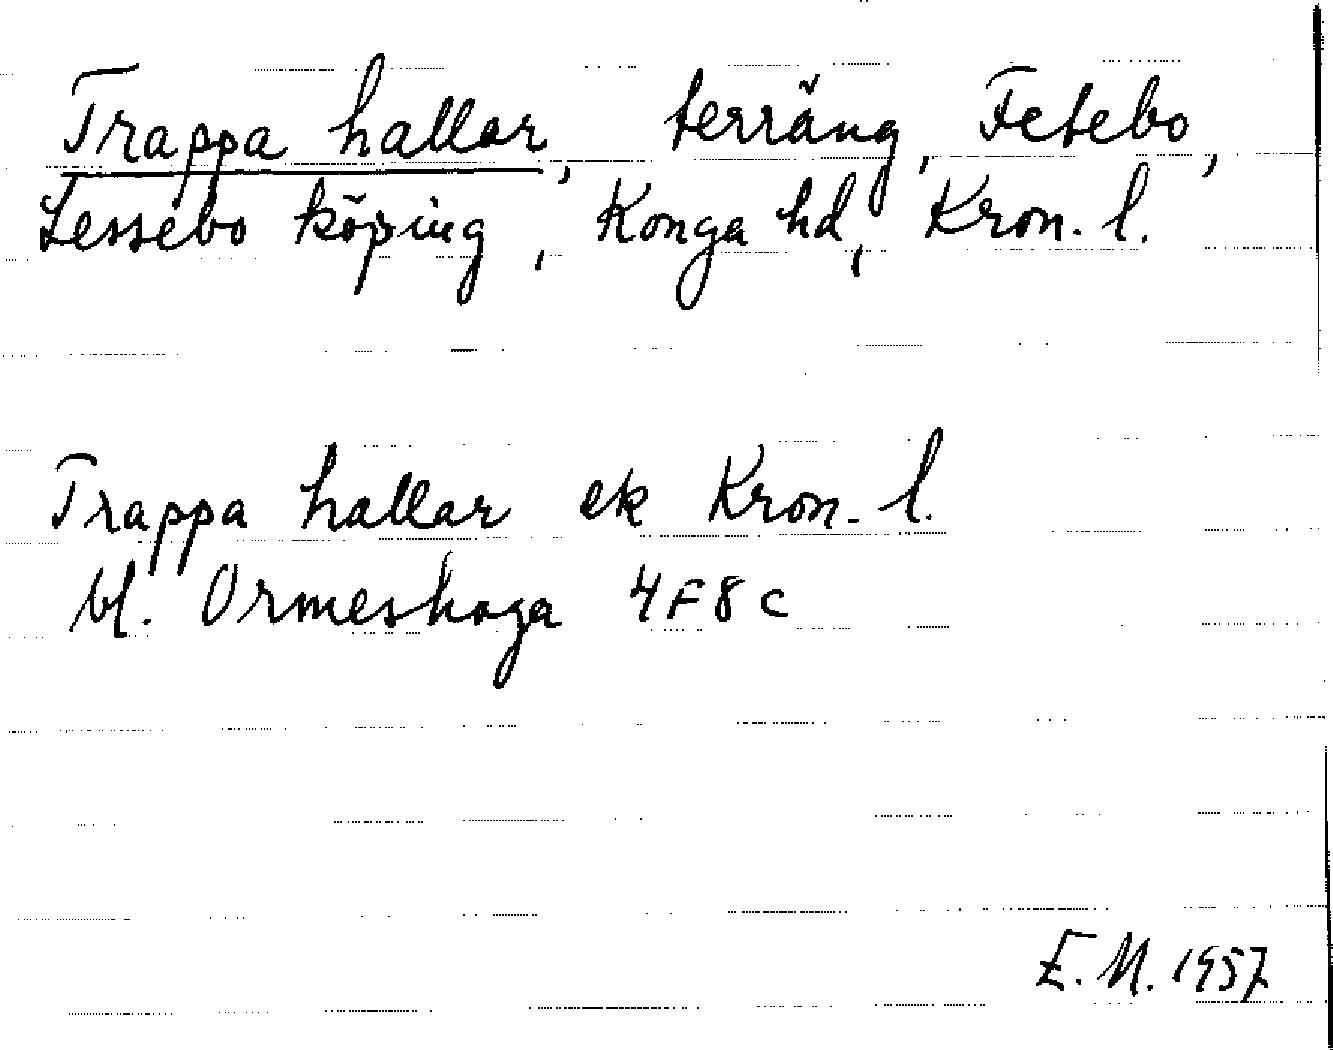 Trappa hallar, terräng, Fetebo,
Lessebo köping, Konga hd, Kron. l.
Trappa hallar ek Kron. l.
bl. Ormeshaga 4F8c
E.M. 1957